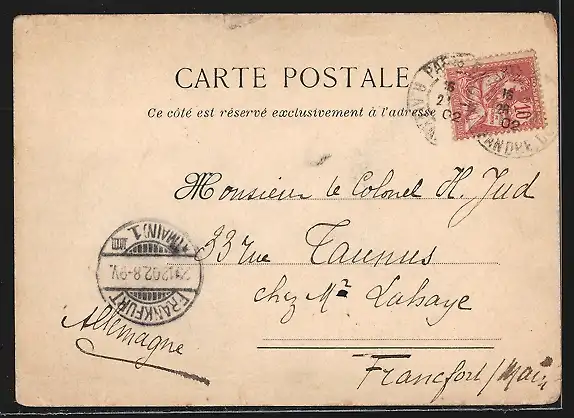 CARTE POSTALE
Ce côté est réservé exclusivement à l'adresse
PARIS
16
21
02
16
02
10
Monsieur le Colonel H. Jud
33 rue Taunus
chez Mr Lahaye
Francfort/Main
Allemagne
FRANKFURT
(MAIN) 1.
12.02.8-9V.